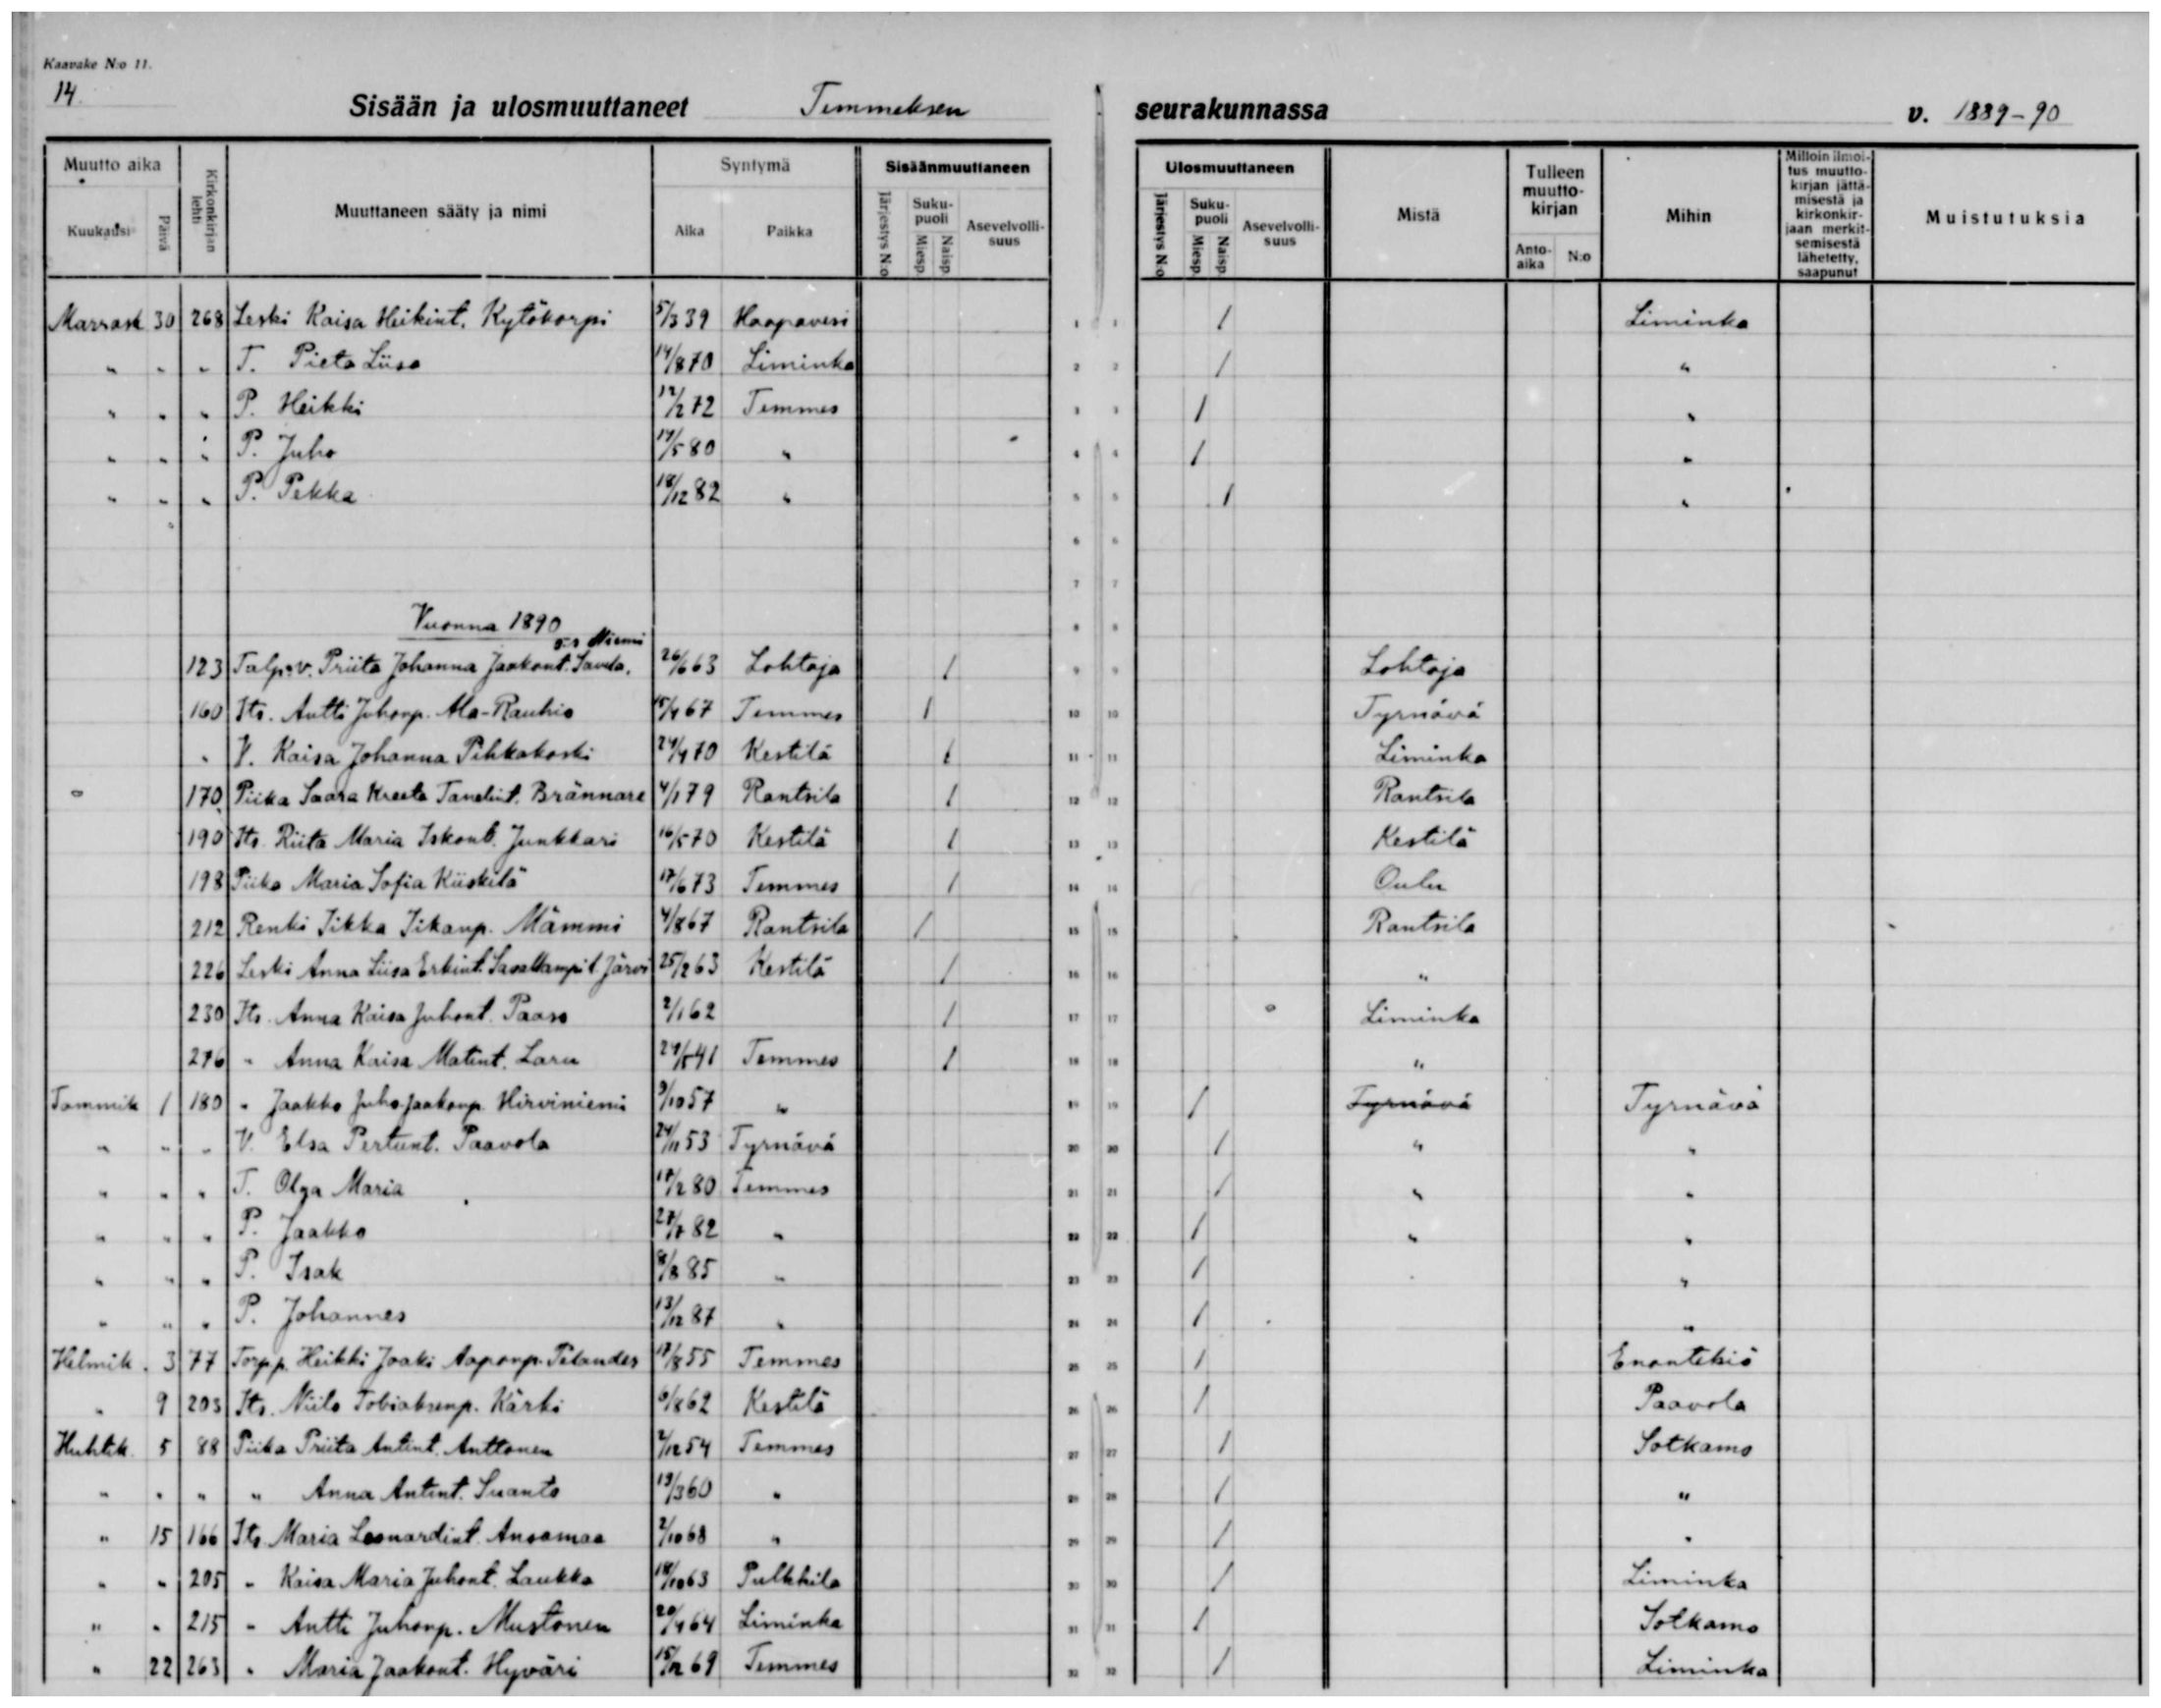 Kaavake N:o 11.
14.
Sisään ja ulosmuuttaneet Temmeksen seurakunnassa v. 1889-90
Muutto aika Kirkonkirjan lehti Muuttaneen sääty ja nimi Syntymä Sisäänmuuttaneen Ulosmuuttaneen Mistä Tulleen muuttokirjan Mihin Milloin ilmoitus muuttokirjan jättämisestä ja kirkonkirjaan merkitsemisestä lähetetty, saapunut Muistutuksia
Kuukausi Päivä Aika Paikka Järjestys N:o Sukupuoli Miesp. Naisp. Asevelvollisuus Järjestys N:o Sukupuoli Miesp. Naisp. Asevelvollisuus Anto-aika N:o
Marrask 30 268 Leski Kaisa Heikint. Kytökorpi 5/3 39 Haapavesi 1 1 / Liminka
" " " T. Pieta Liisa 14/8 70 Liminka 2 2 / "
" " " P. Heikki 12/2 72 Temmes 3 3 / "
" " " P. Juho 14/5 80 " 4 4 / "
" " " P. Pekka 18/12 82 " 5 5 / "
6 6
7 7
Vuonna 1890 8 8
o.s. Niemi
123 Talp. v. Priita Johanna Jaakont. Savela. 26/6 63 Lohtaja / 9 9 Lohtaja
160 Its. Antti Juhonp. Ala-Rauhio 15/4 67 Temmes / 10 10 Tyrnävä
" V. Kaisa Johanna Pihkakoski 24/4 70 Kestilä / 11 11 Liminka
170 Piika Saara Kreeta Tanelint. Brännare 4/1 79 Rantsila / 12 12 Rantsila
190 Its. Riita Maria Iskont. Junkkari 16/5 70 Kestilä / 13 13 Kestilä
198 Piika Maria Sofia Kiiskilä 17/6 73 Temmes / 14 14 Oulu
212 Renki Iikka Iikanp. Mämmi 4/8 67 Rantsila / 15 15 Rantsila
226 Leski Anna Liisa Erkint. Järvi 25/2 63 Kestilä / 16 16 "
230 Its. Anna Kaisa Juhont. Paaso 2/1 62 / 17 17 Liminka
276 " Anna Kaisa Matint. Laru 24/5 41 Temmes / 18 18 "
Tammik 1 180 " Jaakko Juho Jaakonp. Hirviniemi 9/10 57 " 19 19 / Tyrnävä Tyrnävä
" " " V. Elsa Pertunt. Paavola 24/11 53 Tyrnävä 20 20 / " "
" " " T. Olga Maria 18/2 80 Temmes 21 21 / " "
" " " P. Jaakko 27/7 82 " 22 22 / " "
" " " P. Isak 8/8 85 " 23 23 / "
" " " P. Johannes 13/12 87 " 24 24 / "
Helmik. 3 77 Torpp. Heikki Jaaki Aaponp. Pelander 17/8 55 Temmes 25 25 / Enontekiö
" 9 203 Its. Niilo Tobiaksenp. Kärki 6/8 62 Kestilä 26 26 / Paavola
Huhtik. 5 88 Piika Priita Antint. Anttonen 2/12 54 Temmes 27 27 / Sotkamo
" " " " Anna Antint. Suanto 19/3 60 " 28 28 / "
" 15 166 Its. Maria Leonardint. Ansamaa 2/10 68 " 29 29 / "
" " 205 " Kaisa Maria Juhont. Laukka 18/10 63 Pulkkila 30 30 / Liminka
" " 215 " Antti Juhonp. Mustonen 20/4 64 Liminka 31 31 / Sotkamo
" 22 263 " Maria Jaakont. Hyväri 15/12 69 Temmes 32 32 / Liminka